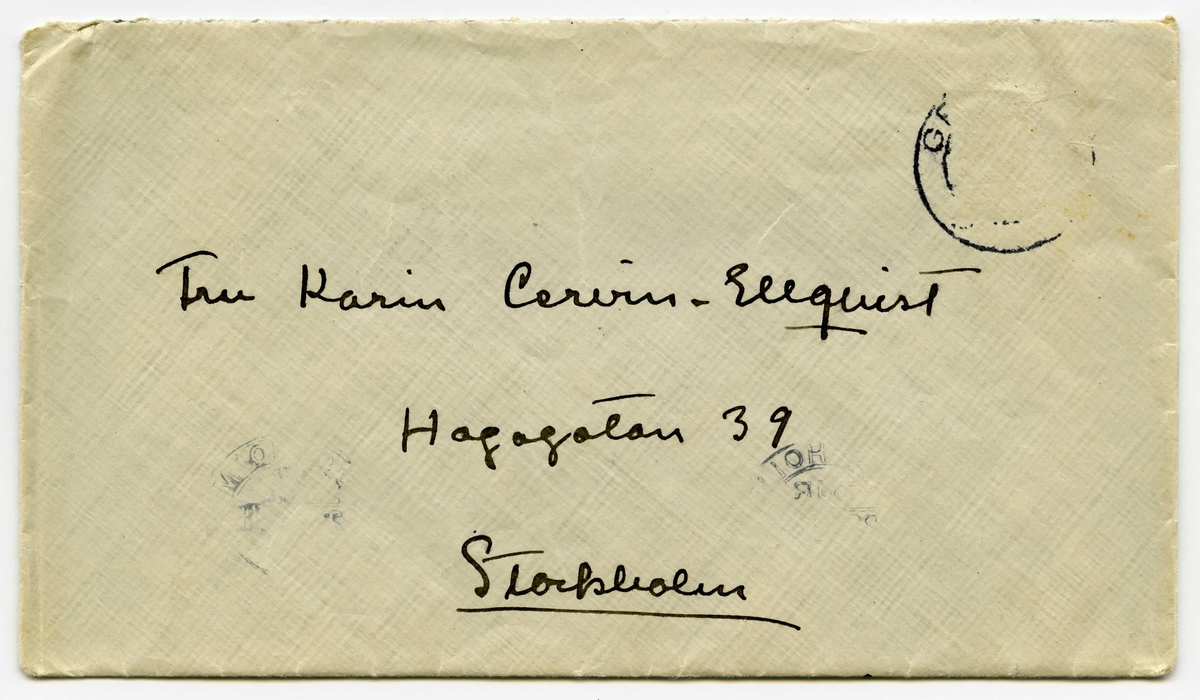 GA
Fru Karin Cervin-Ellquist
Hagagatan 39
Stockholm